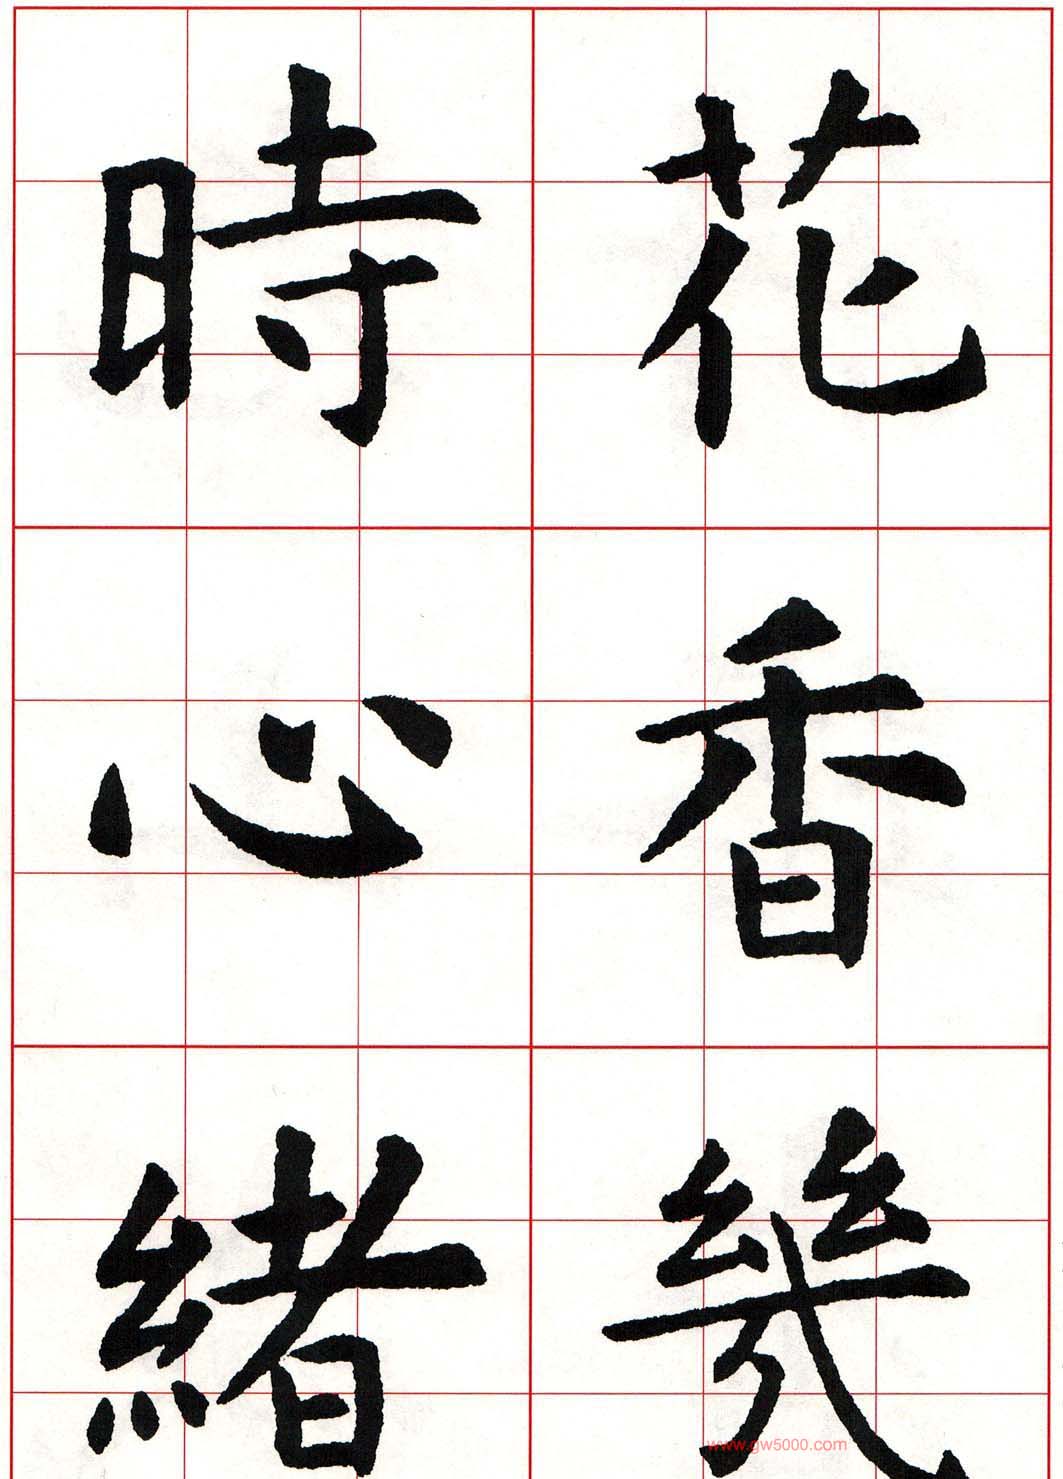 花香幾
時心緒
www.gw5000.com